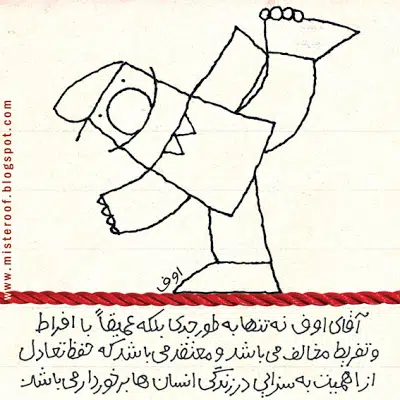 www.misteroof.blogspot.com
اوف
آقای اوف نه تنها به طور جدی بلکه عمیقاً با افراط
و تفریط مخالف می باشد و معتقد می باشد که حفظ تعادل
از اهمیت به سزایی در زندگی انسان ها برخوردار می باشد.